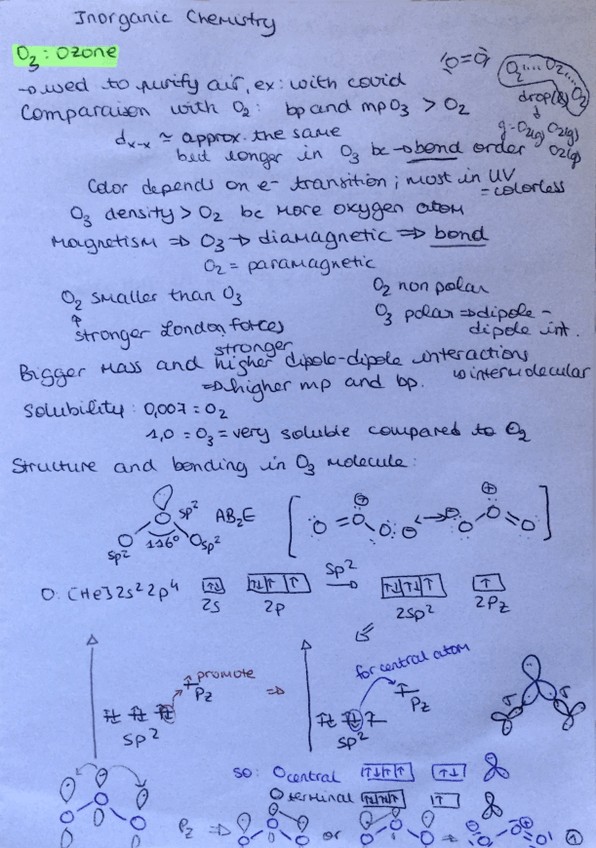 Inorganic Chemistry
O₃ : Ozone
→ used to purify air, ex: with covid
Comparaison with O₂ : bp and mp O₃ > O₂
O=O
O₂....O₂...O₂
drop(l)
g = O₂(g) O₂(g) O₂(g)
dₓ₋ₓ ≃ approx. the same
but longer in O₃ bc → bond order
Color depends on e⁻ transition ; most in UV = colorless
O₃ density > O₂ bc more oxygen atom
Magnetism ⇒ O₃ → diamagnetic ⇒ bond
O₂ = paramagnetic
O₂ smaller than O₃
↑
stronger London forces
O₂ non polar
O₃ polar ⇒ dipole -
dipole int.
stronger
Bigger mass and higher dipole-dipole interactions
↳ intermolecular
⇒ higher mp and bp.
Solubility : 0,007 = O₂
1,0 = O₃ = very soluble compared to O₂
Structure and bonding in O₃ molecule :
O sp² AB₂E
O sp² 116° O sp²
[ O = O⊕ - O⊖ ↔ ⊖O - O⊕ = O ]
O: [He] 2s² 2p⁴ ↑↓ ↑↓ ↑ ↑ sp² → ↑↓ ↑↓ ↑ ↑
2s 2p 2sp² 2Pz
promote
Pz
sp²
⇒
for central atom
Pz
sp²
σ σ
so: O central ↑↓ ↑ ↑ ↑↓
O terminal ↑↓ ↑↓ ↑ ↑
Pz ⇒ O O O or O O O ⇒ O O⊕ O
1